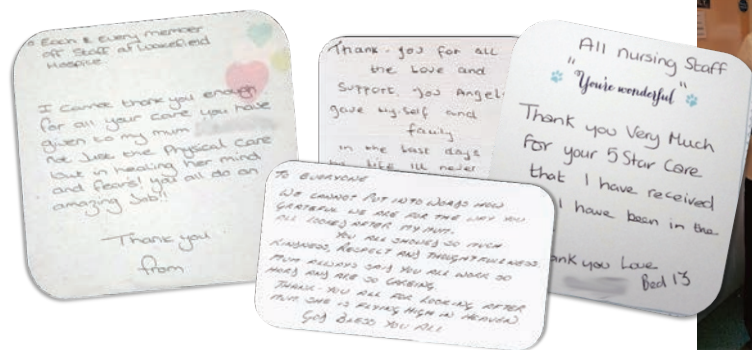 Each & Every member
off Staff at Wakefield
Hospice
I cannot thank you enough
for all your care you have
given to my mum
not Just the Physical Care
but in healing her mind
and fears! you all do an
amazing Job!!
Thank you
from
Thank-you for all
the Love and
Support. You Angels
gave my-self and
family
in the last days
life Ill never
TO EVERYONE
WE CANNOT PUT INTO WORDS HOW
GRATEFUL WE ARE FOR THE WAY YOU
ALL LOOKED AFTER MY MUM.
YOU ALL SHOWED SO MUCH
KINDNESS, RESPECT AND THOUGHTFULNESS.
MUM ALWAYS SAID YOU ALL WORK SO
HARD AND ARE SO CARING.
THANK-YOU ALL FOR LOOKING AFTER
MUM. SHE IS FLYING HIGH IN HEAVEN
GOD BLESS YOU ALL
All nursing Staff
"You're wonderful"
Thank you Very Much
For your 5 Star Care
that I have received
I have been in the
ank you Love
Bed 13